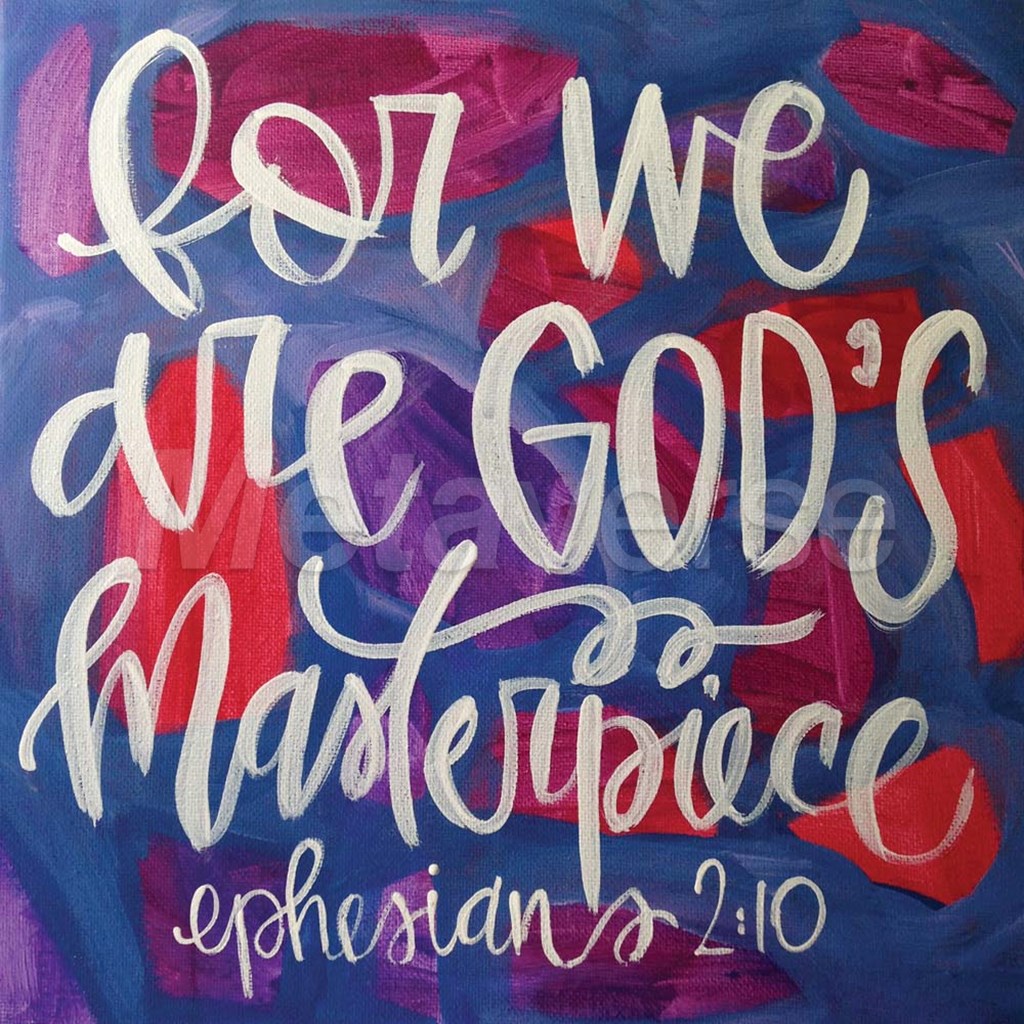 for we
are GOD'S
masterpiece
ephesians 2:10
Metaverse